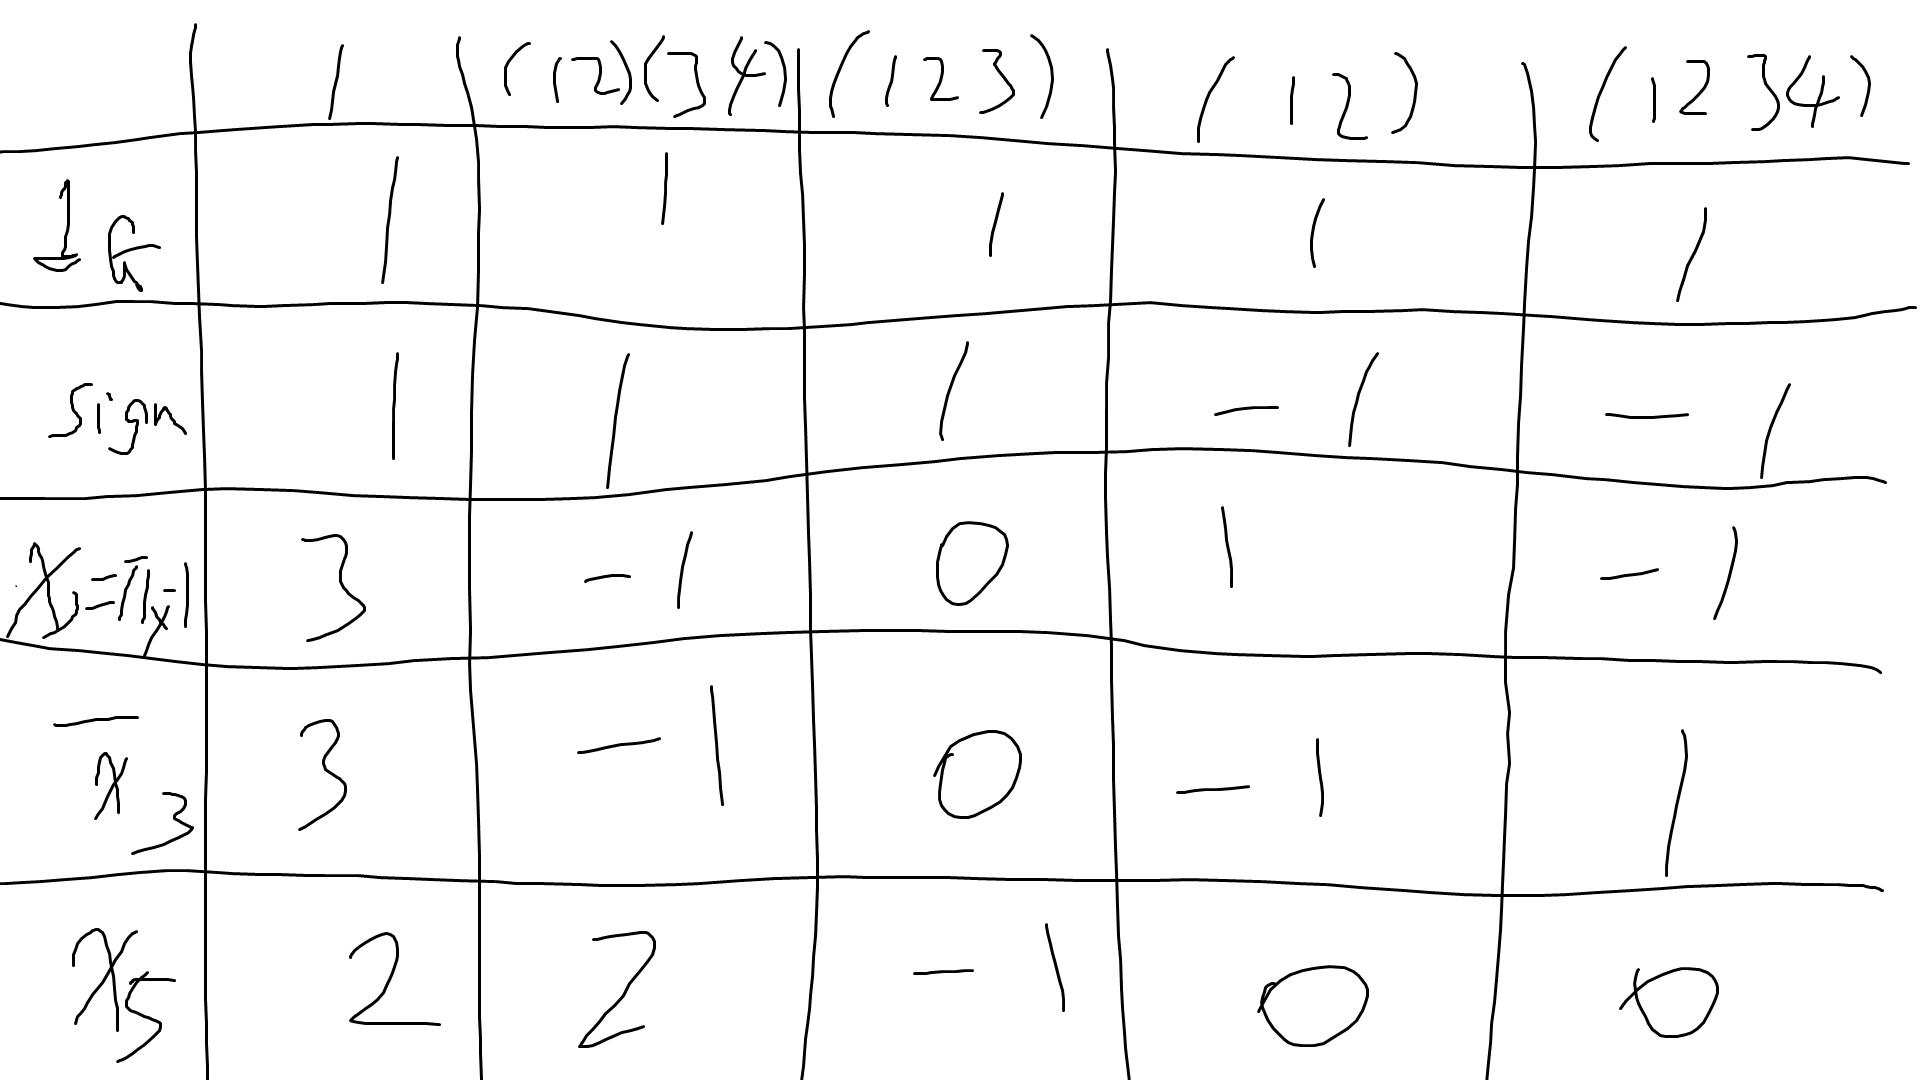 1 (12)(34) (123) (12) (1234)
1_G 1 1 1 1 1
sign 1 1 1 -1 -1
χ_3=π_X-1 3 -1 0 1 -1
χ̄_3 3 -1 0 -1 1
χ_5 2 2 -1 0 0